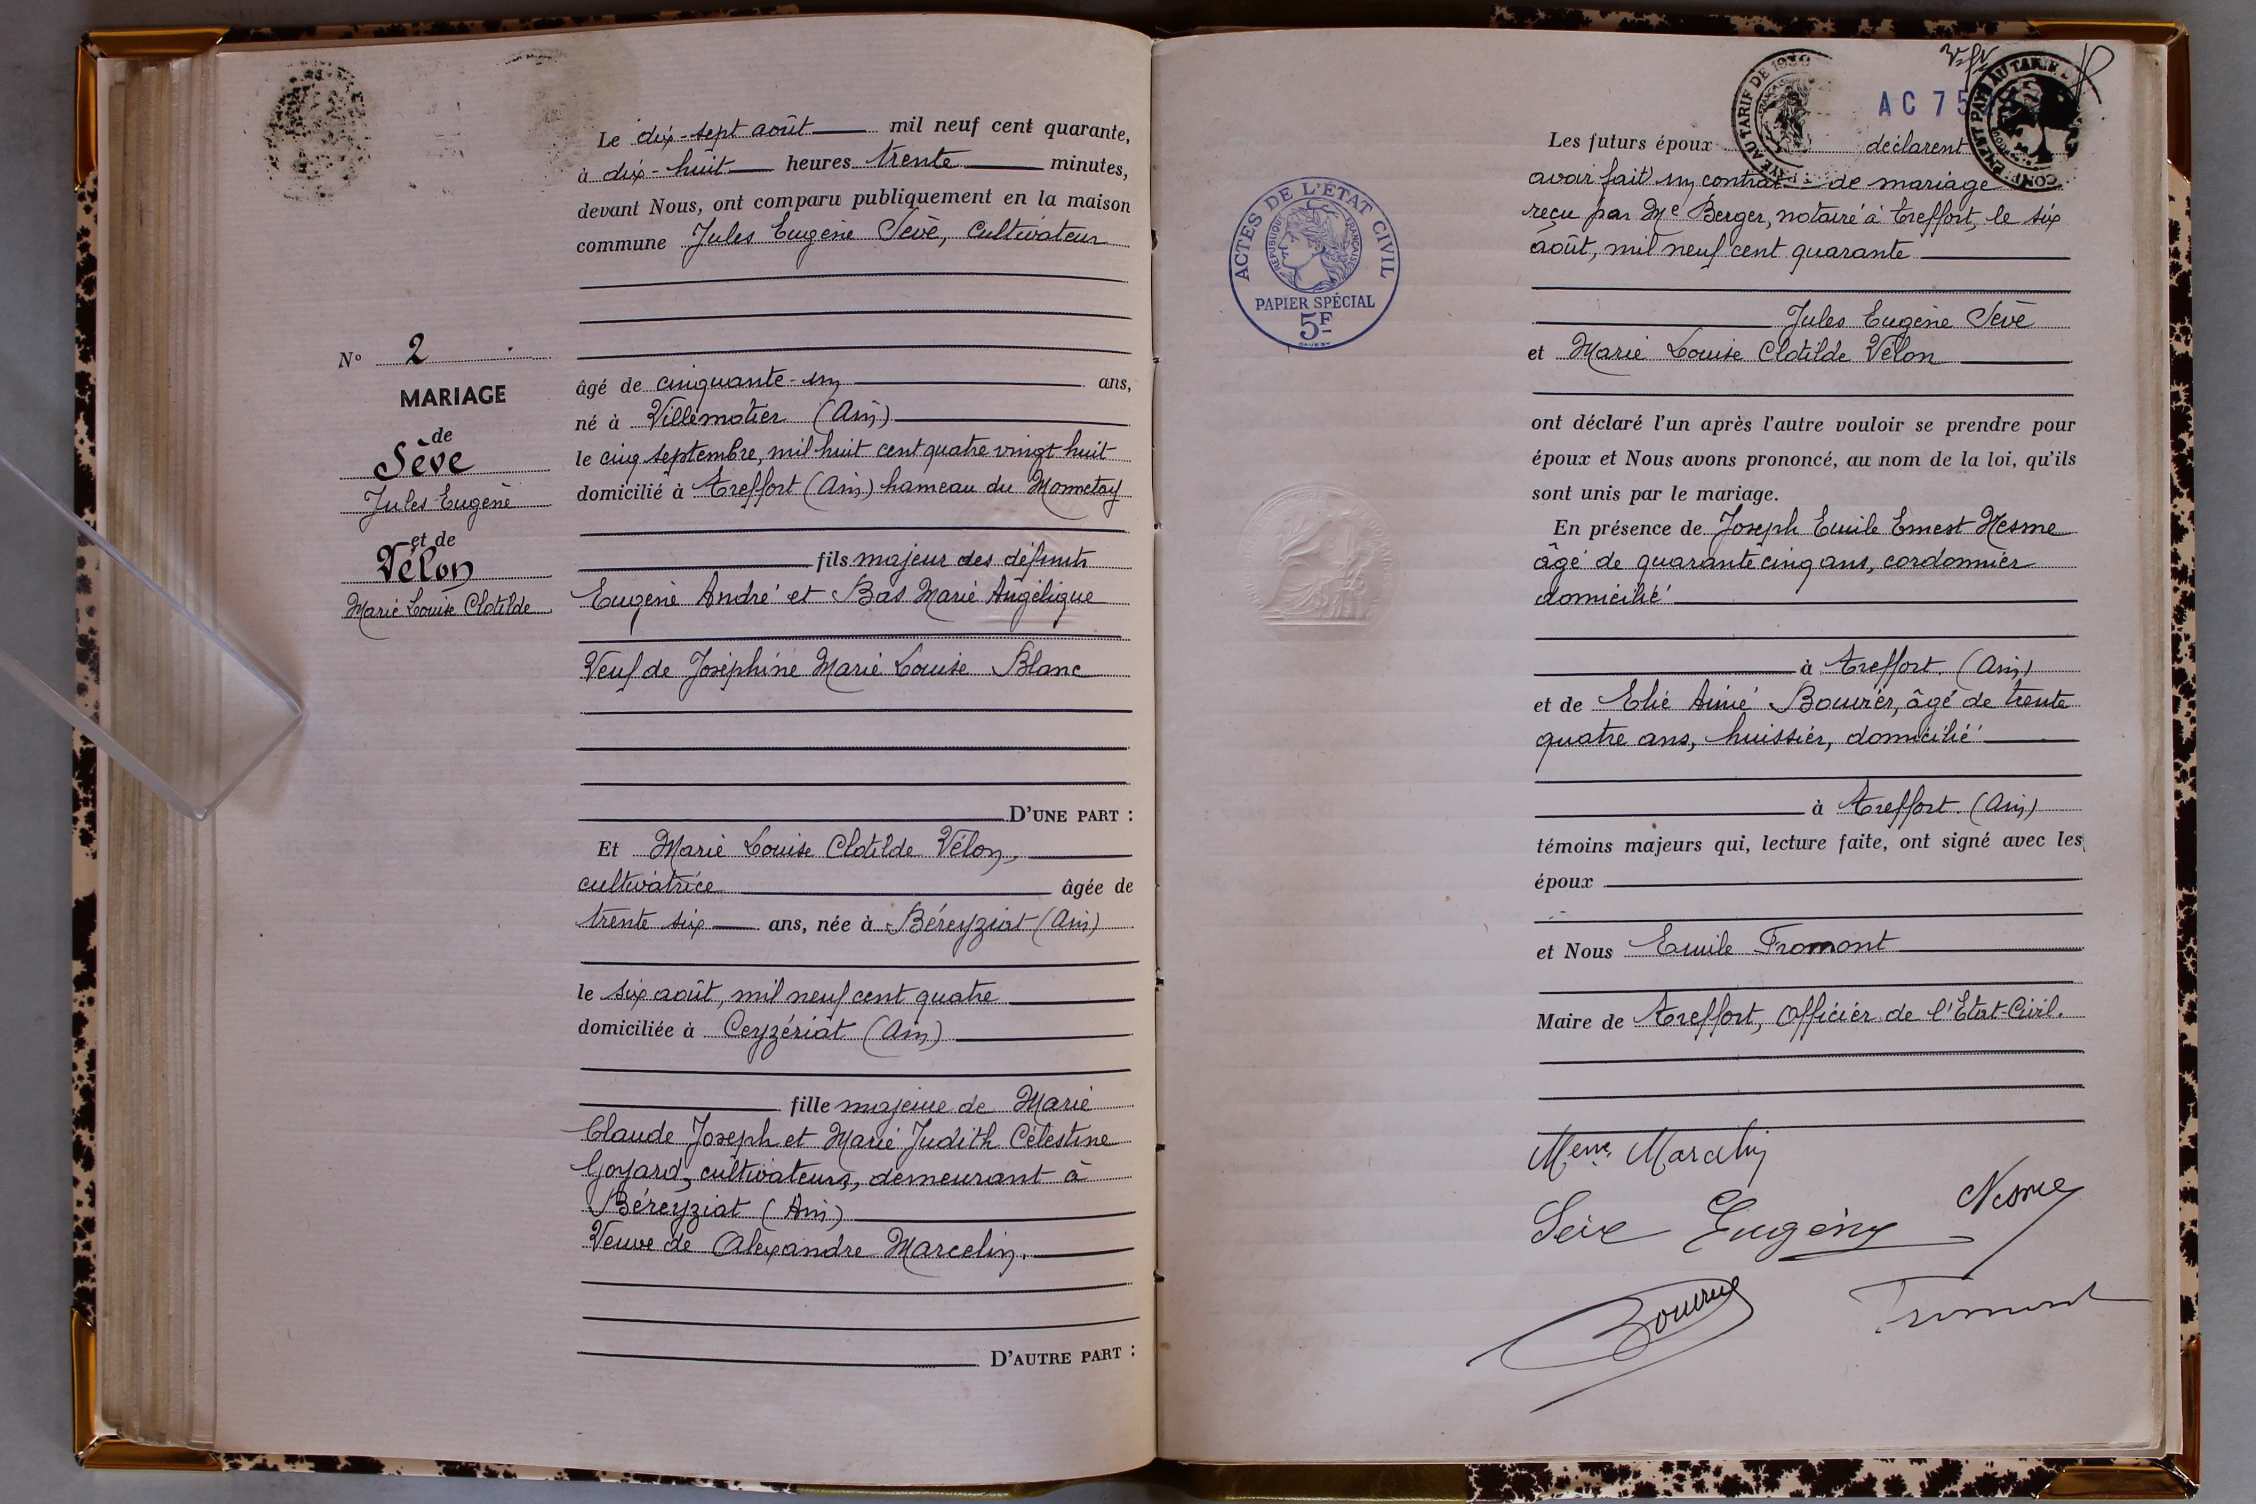 Le dix-sept août mil neuf cent quarante,
à dix-huit heures trente minutes,
devant Nous, ont comparu publiquement en la maison
commune Jules Eugène Sève, cultivateur
N° 2
MARIAGE
de
Sève
Jules Eugène
et de
Vélon
Marie Louise Clotilde
âgé de cinquante-un ans,
né à Villemotier (Ain)
le cinq septembre, mil huit cent quatre vingt huit
domicilié à Treffort (Ain) hameau du Monnetay
fils majeur des défunts
Eugène André et Bas Marie Angélique
Veuf de Joséphine Marie Louise Blanc
D'UNE PART :
Et Marie Louise Clotilde Vélon,
cultivatrice âgée de
trente six ans, née à Béreyziat (Ain)
le six août, mil neuf cent quatre
domiciliée à Ceyzériat (Ain)
fille majeure de Marie
Claude Joseph et Marie Judith Célestine
Goyard, cultivateurs, demeurant à
Béreyziat (Ain)
Veuve de Alexandre Marcelin.
D'AUTRE PART :
ACTES DE L'ÉTAT CIVIL
RÉPUBLIQUE FRANÇAISE
PAPIER SPÉCIAL
5F
TARIF DE 1930
AC 75
Les futurs époux déclarent
avoir fait un contrat de mariage
reçu par Me Berger, notaire à Treffort, le six
août, mil neuf cent quarante
Jules Eugène Sève
et Marie Louise Clotilde Vélon
ont déclaré l'un après l'autre vouloir se prendre pour
époux et Nous avons prononcé, au nom de la loi, qu'ils
sont unis par le mariage.
En présence de Joseph Emile Ernest Nesme
âgé de quarante cinq ans, cordonnier
domicilié
à Treffort. (Ain)
et de Elie Aimé Bouvier, âgé de trente
quatre ans, huissier, domicilié
à Treffort. (Ain)
témoins majeurs qui, lecture faite, ont signé avec les
époux
et Nous Emile Fromont
Maire de Treffort, Officier de l'Etat-Civil.
Marcelin
Sève Eugène Nesme
Bouvier Fromont